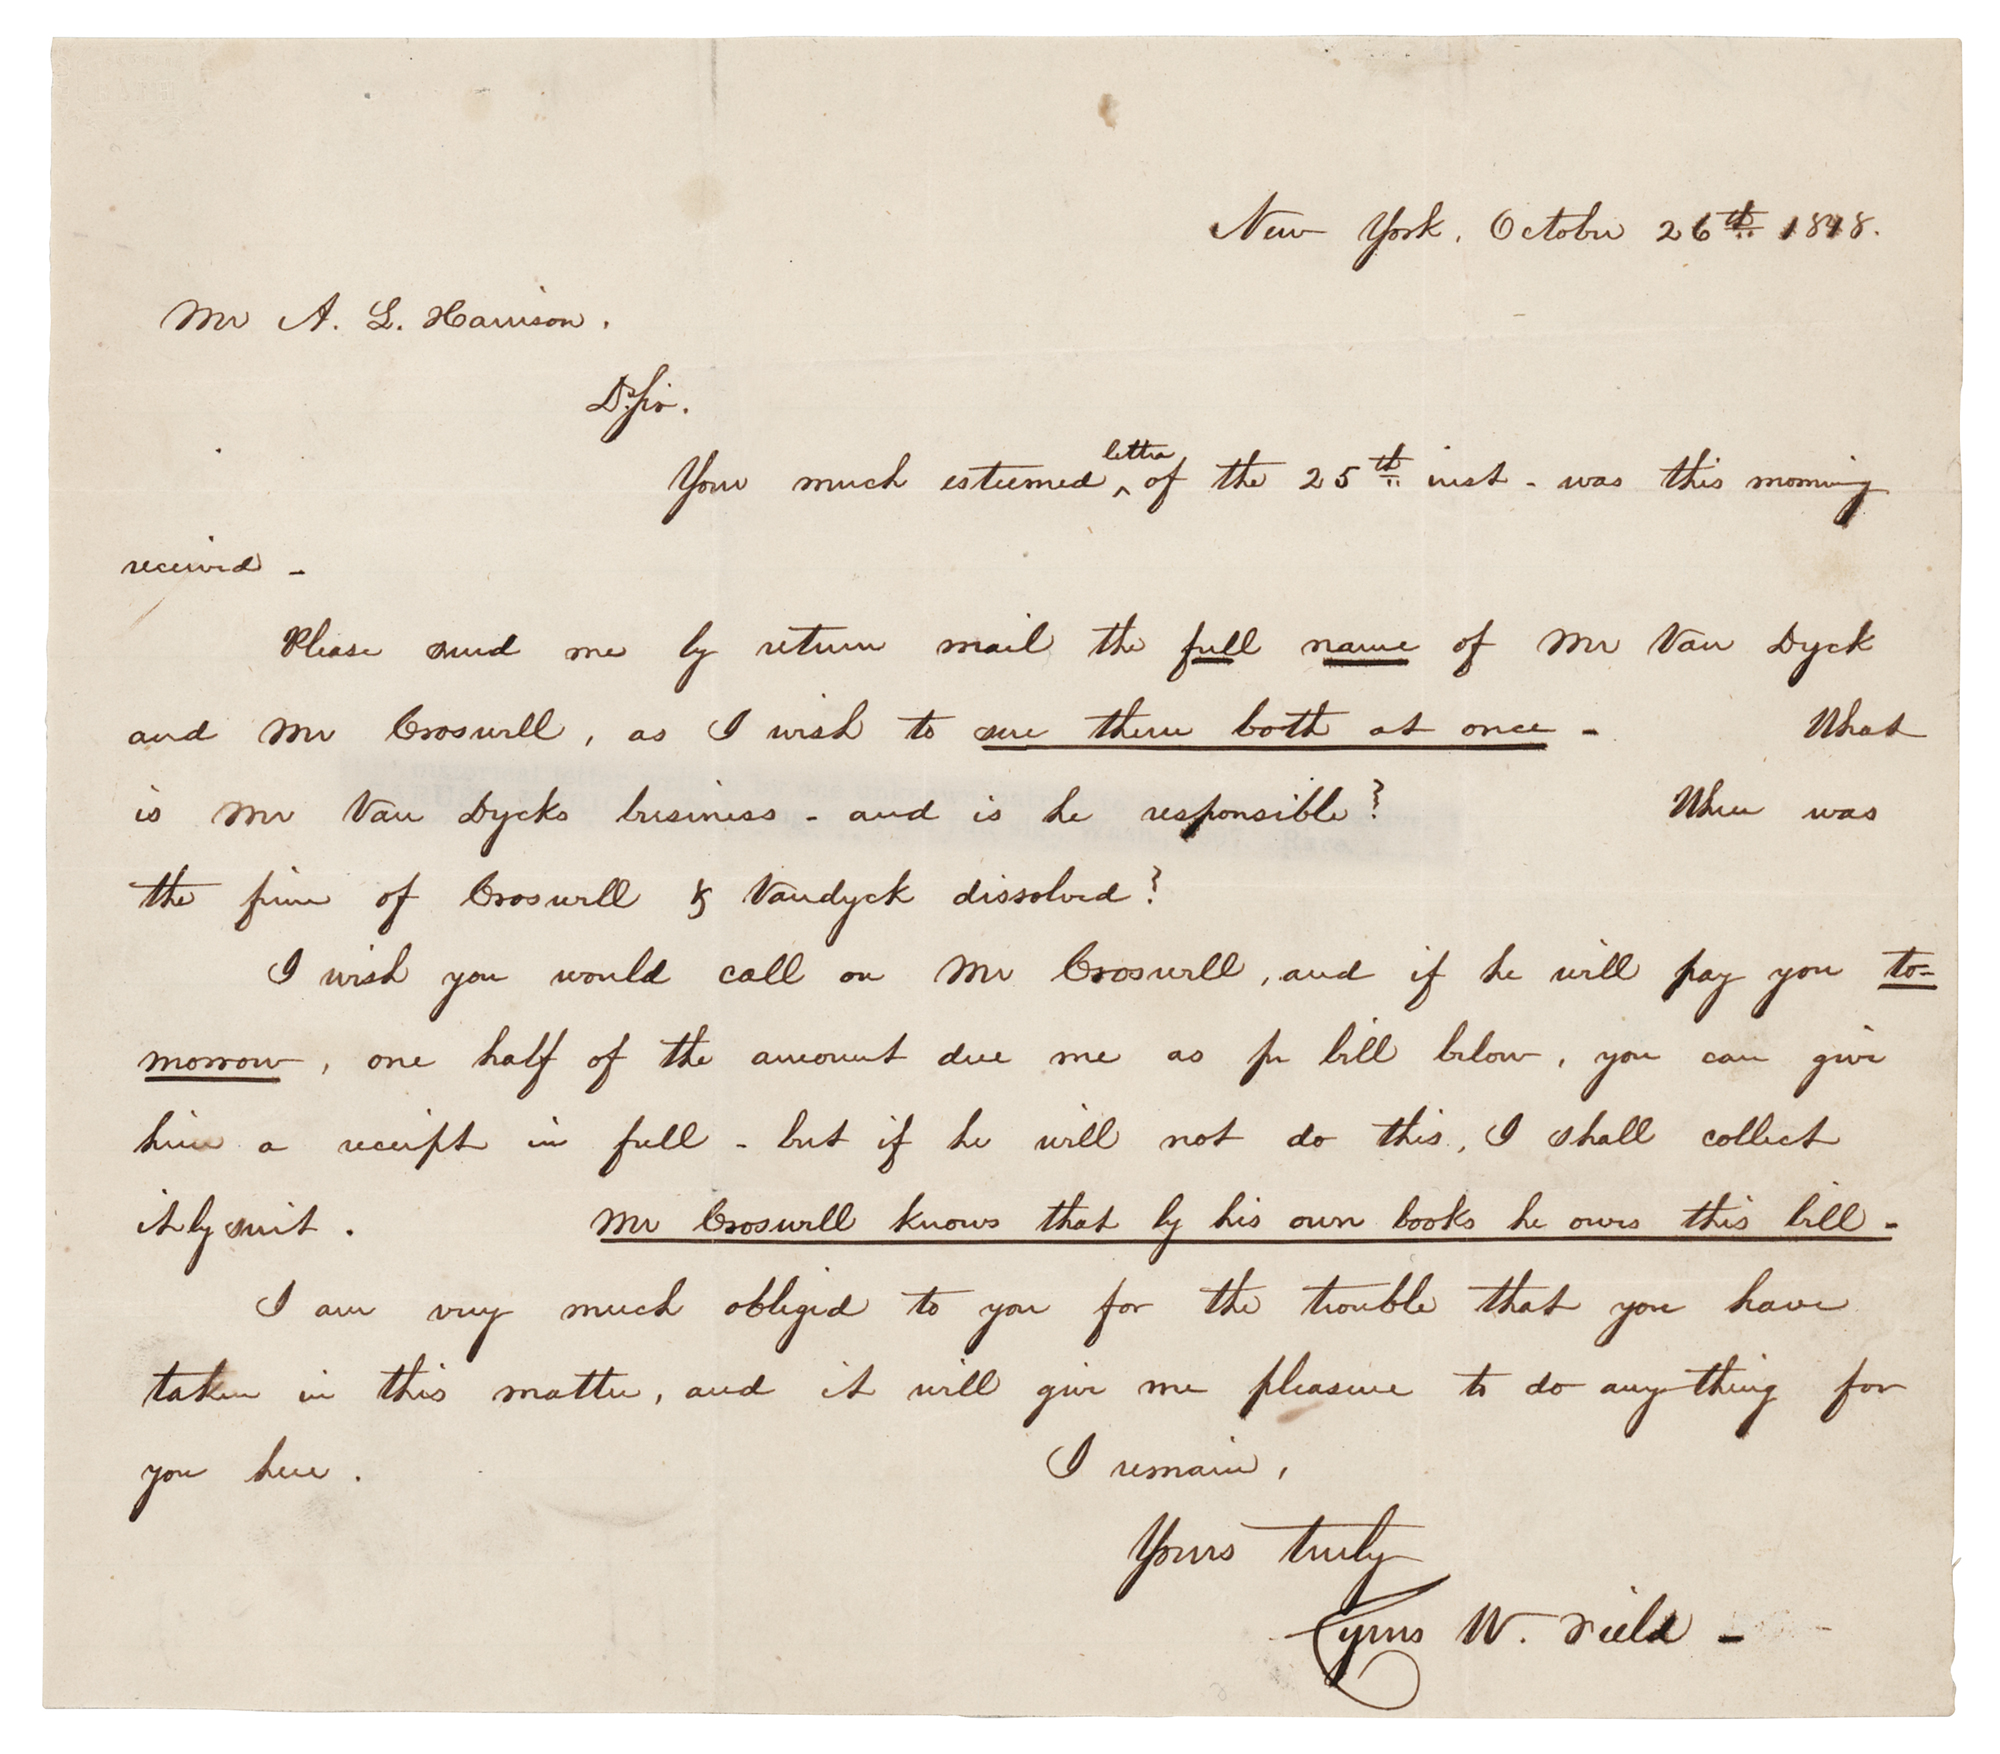 New York, October 26th 1848.
Mr A. L. Harrison.
Dr Sir.
Your much esteemed ^letter of the 25th inst - was this morning
received -
Please send me by return mail the full name of Mr Van Dyck
and Mr Croswell, as I wish to sue them both at once - What
is Mr Van Dycks business - and is he responsible? When was
the firm of Croswell & Vandyck dissolved?
I wish you would call on Mr Croswell, and if he will pay you to-
morrow, one half of the amount due me as pr bill below, you can give
him a receipt in full - but if he will not do this, I shall collect
it by suit. Mr Croswell knows that by his own books he owes this bill -
I am very much obliged to you for the trouble that you have
taken in this matter, and it will give me pleasure to do anything for
you here. I remain,
Yours truly
Cyrus W. Field -